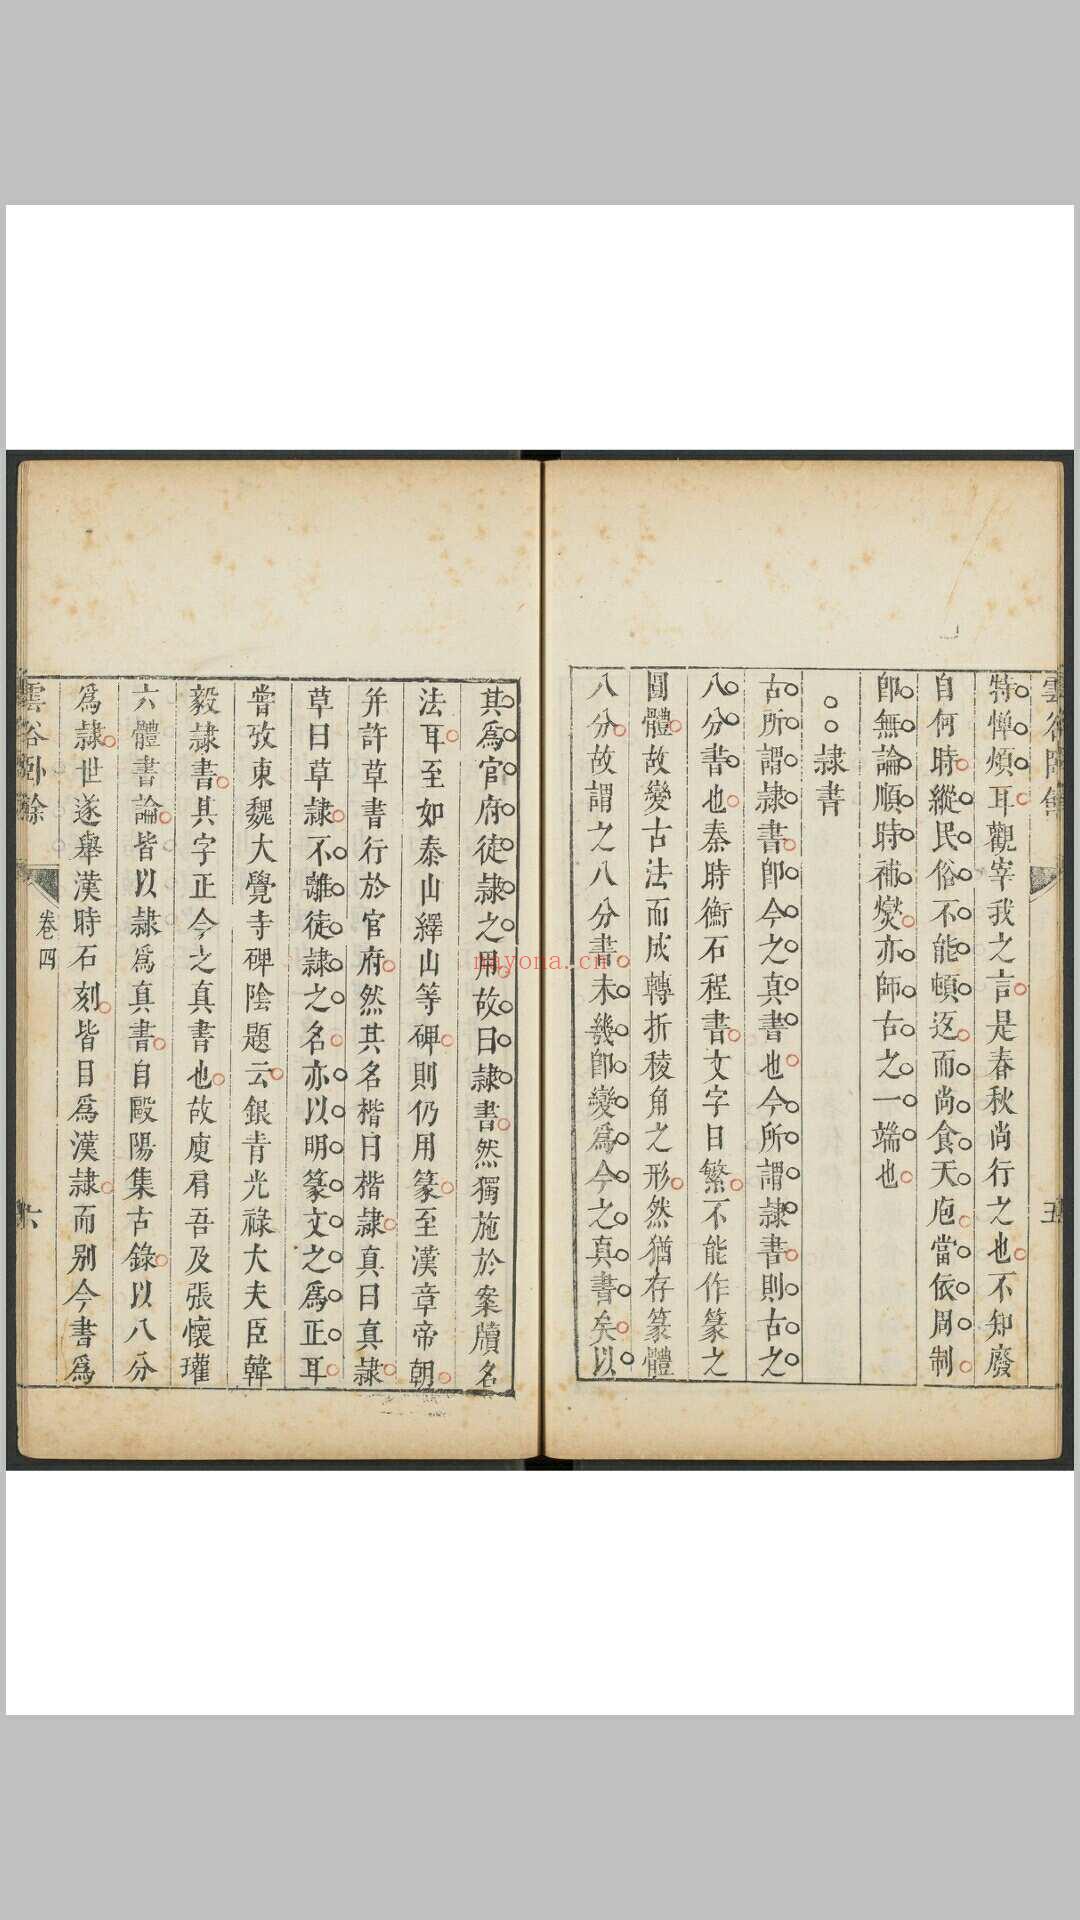 特憚煩耳觀宰我之言是春秋尚行之也不知廢
自何時縱民俗不能頓返而尚食天庖當依周制
卽無論順時補爕亦師古之一端也
隷書
古所謂隷書卽今之真書也今所謂隷書則古之
八分書也秦時衡石程書文字日繁不能作篆之
圓體故變古法而成轉折稜角之形然猶存篆體
八分故謂之八分書未幾卽變爲今之真書矣以
其爲官府徒隷之用故曰隷書然獨施於案牘名
法耳至如泰山繹山等碑則仍用篆至漢章帝朝
并許草書行於官府然其名楷曰楷隷真曰真隷
草曰草隷不離徒隷之名亦以明篆文之爲正耳
嘗攷東魏大覺寺碑陰題云銀青光祿大夫臣韓
毅隷書其字正今之真書也故庾肩吾及張懷瓘
六體書論皆以隷爲真書自歐陽集古錄以八分
爲隷世遂舉漢時石刻皆目爲漢隷而别今書爲
雲谷臥餘
卷四
六
mayona.cn